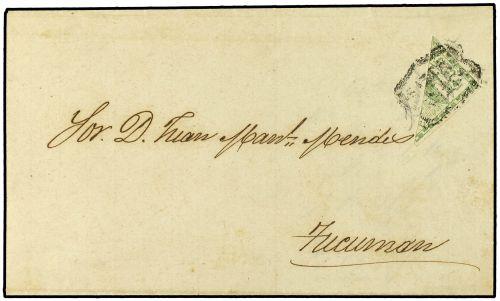 Sor. D. Juan Manl. Mendes
Tucuman